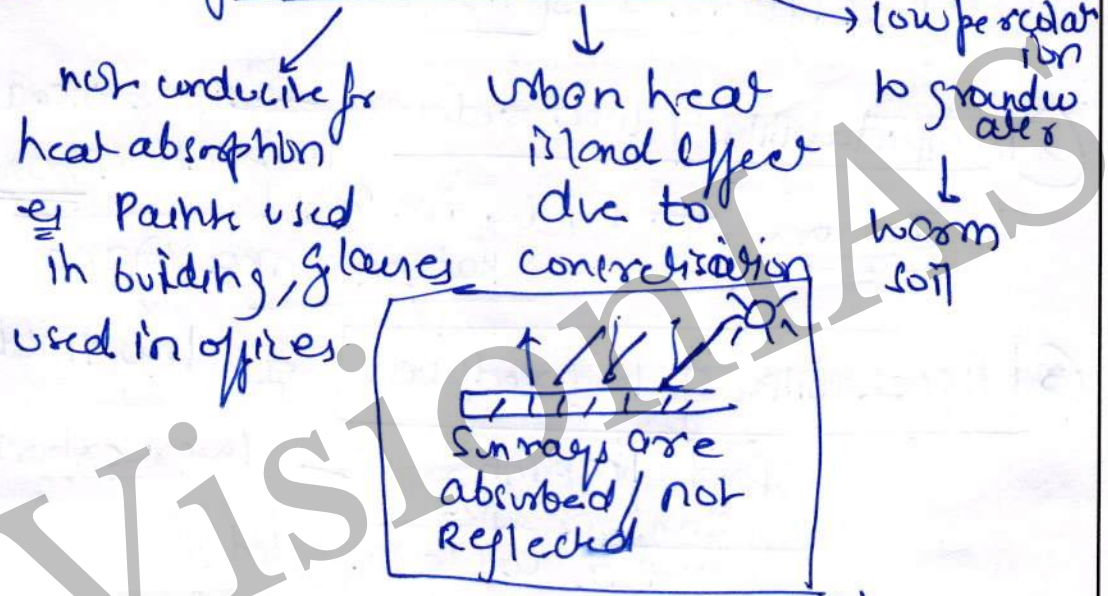 not conducive for
heat absorption
eg Paints used
in building, glasses
used in offices
urban heat
island effect
due to
concretisation
low percolat
ion
to groundw
ater
warm
soil
Sunrays are
absorbed / not
Reflected
VisionIAS